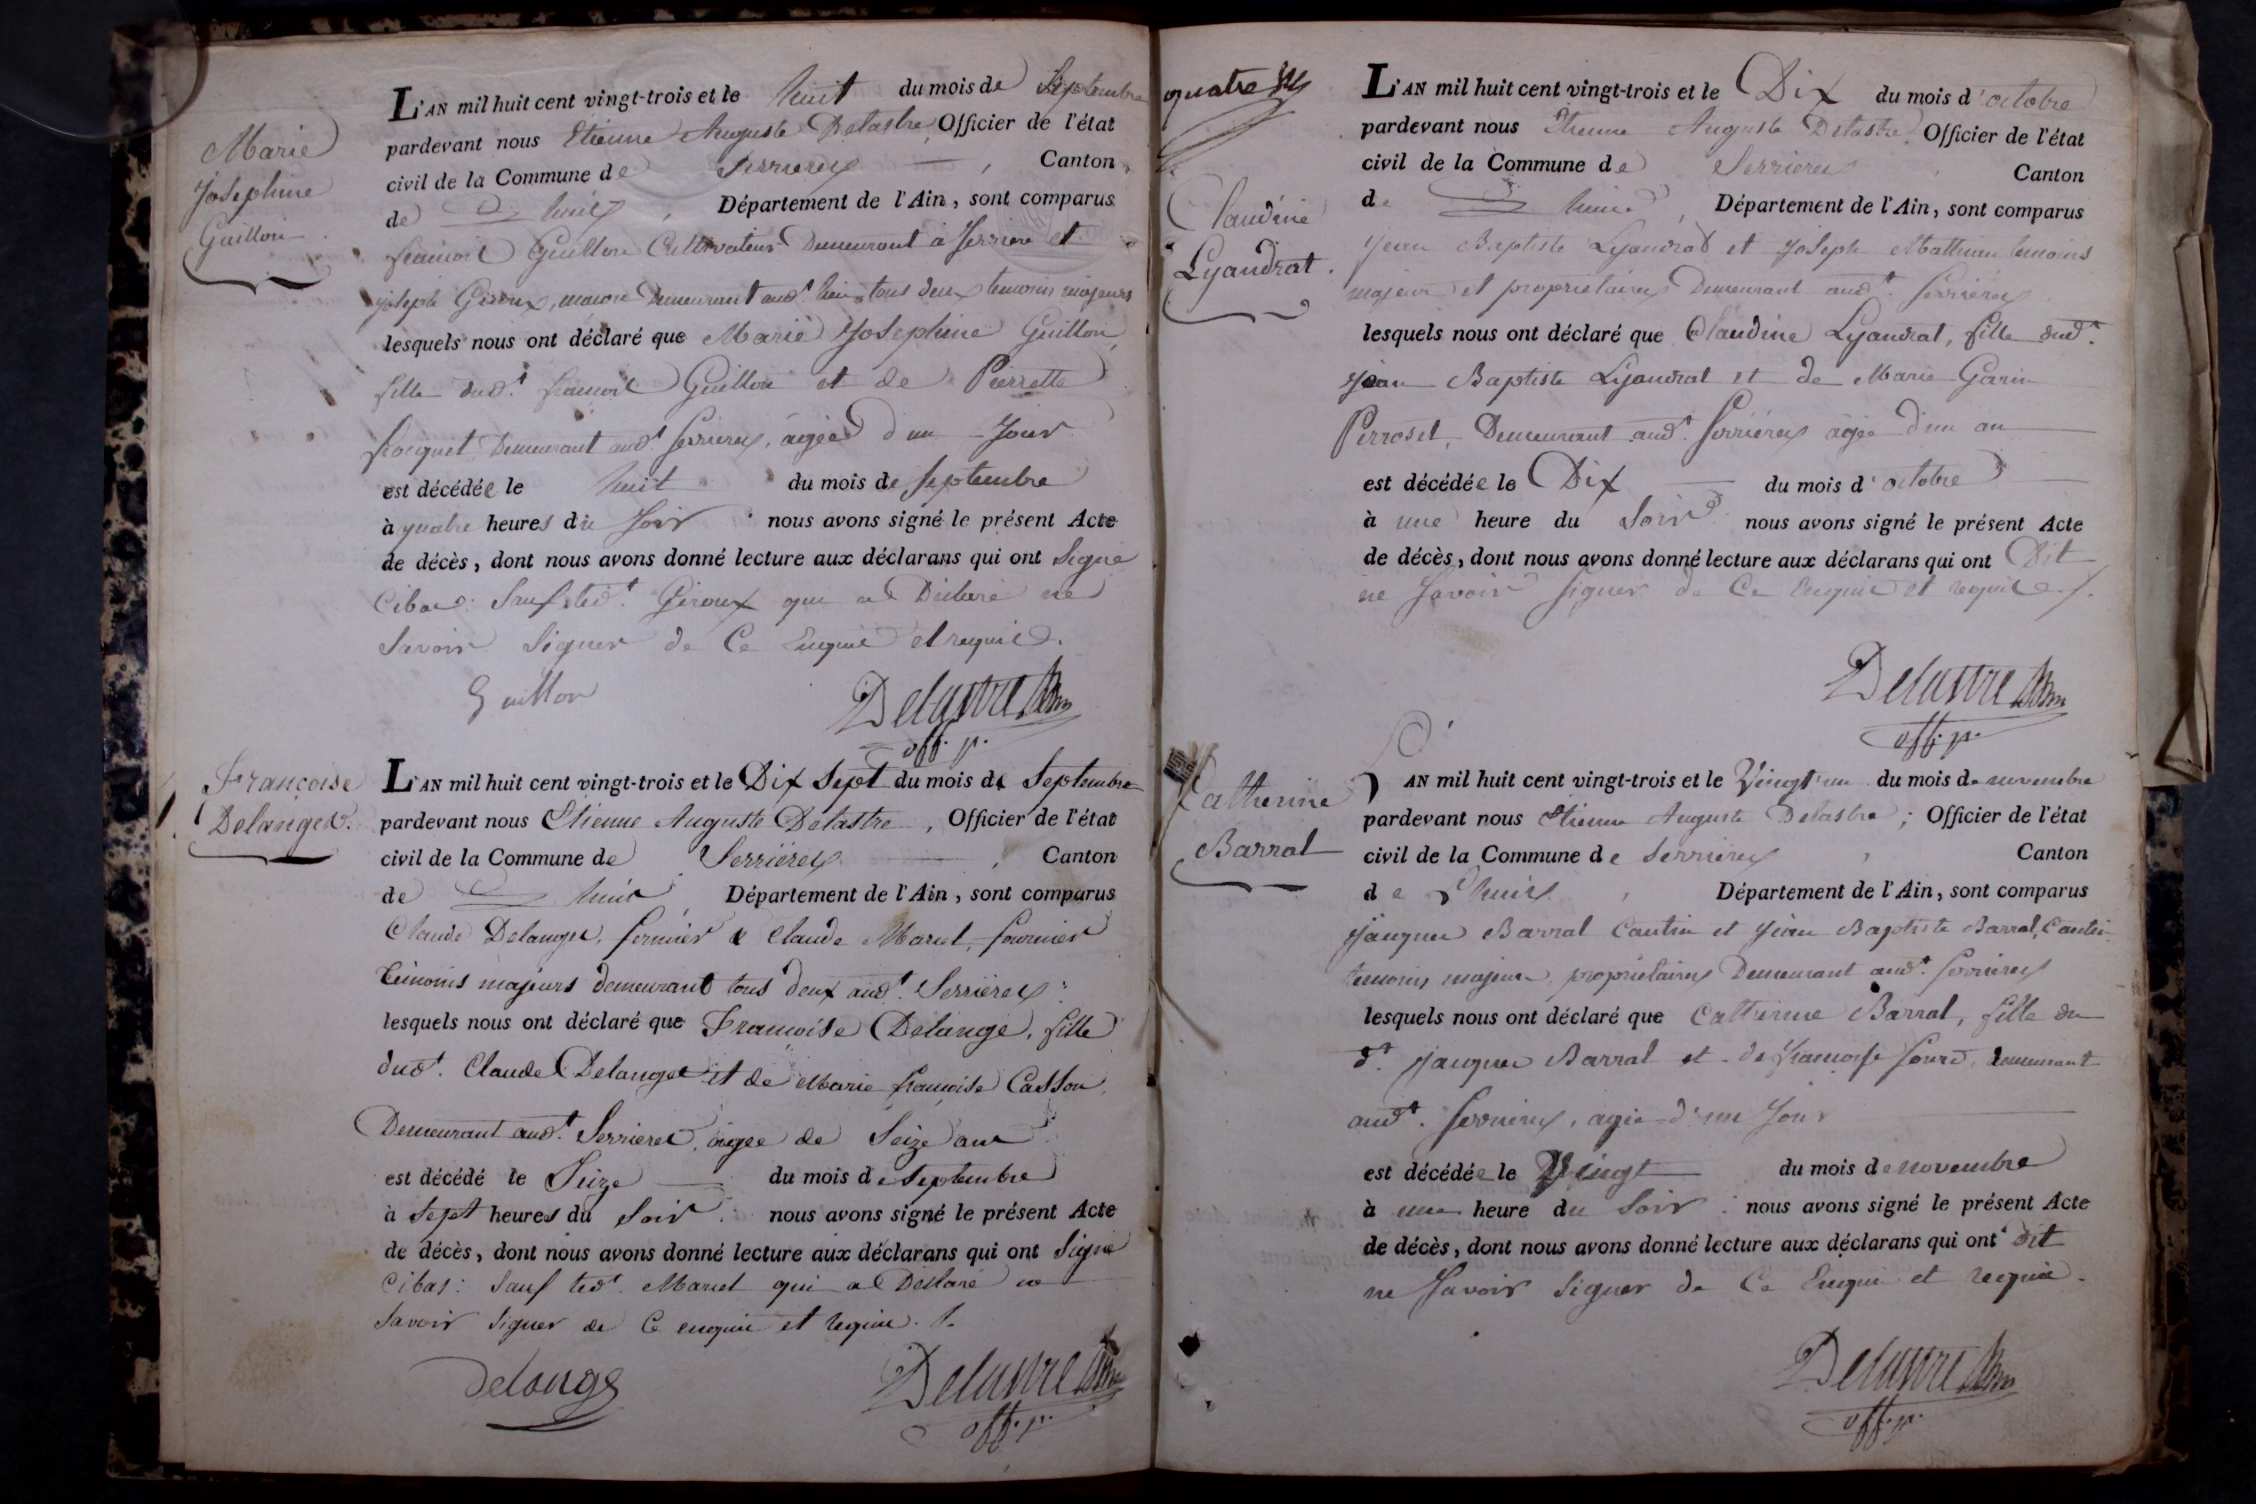 Marie
Josephine
Guillon
L'AN mil huit cent vingt-trois et le huit du mois de Septembre
pardevant nous Etienne Auguste Delastre, Officier de l'état
civil de la Commune de Serrieres, Canton
de Lhuis, Département de l'Ain, sont comparus
francois Guillon Cultivateur Demeurant à Serriere et
joseph Giroux, macon Demeurant aud.t lieu tous deux temoins majeurs
lesquels nous ont déclaré que Marie Josephine Guillon,
fille dud.t francois Guillon et de Pierrette
Demeurant aud.t Serrieres, agée d'un Jour
est décédée le huit du mois de Septembre
à quatre heures du Soir nous avons signé le présent Acte
de décès, dont nous avons donné lecture aux déclarans qui ont Signé
Cibas: Sauf led.t Giroux qui a Déclaré ne
Savoir Signer de Ce Enquis et requis.
Guillon
Delastre
off. p.
Françoise
Delanges.
L'AN mil huit cent vingt-trois et le Dix Sept du mois de Septembre
pardevant nous Etienne Auguste Delastre, Officier de l'état
civil de la Commune de Serriéres, Canton
de Lhuis, Département de l'Ain, sont comparus
Claude Delange, fermier & Claude Maruel, fournier
témoins majeurs demeurant tous deux aud.t Serriéres:
lesquels nous ont déclaré que Francoise Delange, fille
dud.t Claude Delanges et de Marie francoise Casson,
Demeurant aud.t Serrieres, agée de Seize ans
est décédé le Seize du mois de Septembre
à Sept heures du Soir. nous avons signé le présent Acte
de décès, dont nous avons donné lecture aux déclarans qui ont Signé
Cibas: Sauf led.t Maruel qui a Déclaré ne
Savoir Signer de Ce enquis et requis.
Delange
Delastre
off. p.
quatre
Claudine
Lyandrat.
L'AN mil huit cent vingt-trois et le Dix du mois d'octobre
pardevant nous Etienne Auguste Delastre, Officier de l'état
civil de la Commune de Serrieres, Canton
de Lhuis, Département de l'Ain, sont comparus
Jean Baptiste Lyandrat et Joseph Matthieu temoins
majeurs et proprietaires Demeurant aud.t Serrieres
lesquels nous ont déclaré que Claudine Lyandrat, fille dud.t
Jean Baptiste Lyandrat et de Marie Garin
Perroset, Demeurant aud.t Serriéres agée d'un an
est décédée le Dix du mois d'octobre
à une heure du Soir nous avons signé le présent Acte
de décès, dont nous avons donné lecture aux déclarans qui ont Dit
ne Savoir Signer de Ce Enquis et requis.
Delastre
off. p.
Catherine
Barral
L'AN mil huit cent vingt-trois et le Vingt un du mois de novembre
pardevant nous Etienne Auguste Delastre; Officier de l'état
civil de la Commune de Serrieres, Canton
de Lhuis, Département de l'Ain, sont comparus
Jacques Barral Cantin et Jean Baptiste Barral, Cantin
temoins majeurs proprietaires Demeurant aud.t Serrieres
lesquels nous ont déclaré que Catherine Barral, fille du
d.t Jacques Barral et de francoise demeurant
aud.t Serrieres, agée d'un Jour
est décédée le Vingt du mois de novembre
à une heure du Soir: nous avons signé le présent Acte
de décès, dont nous avons donné lecture aux déclarans qui ont dit
ne Savoir Signer de Ce Enquis et requis.
Delastre
off. p.